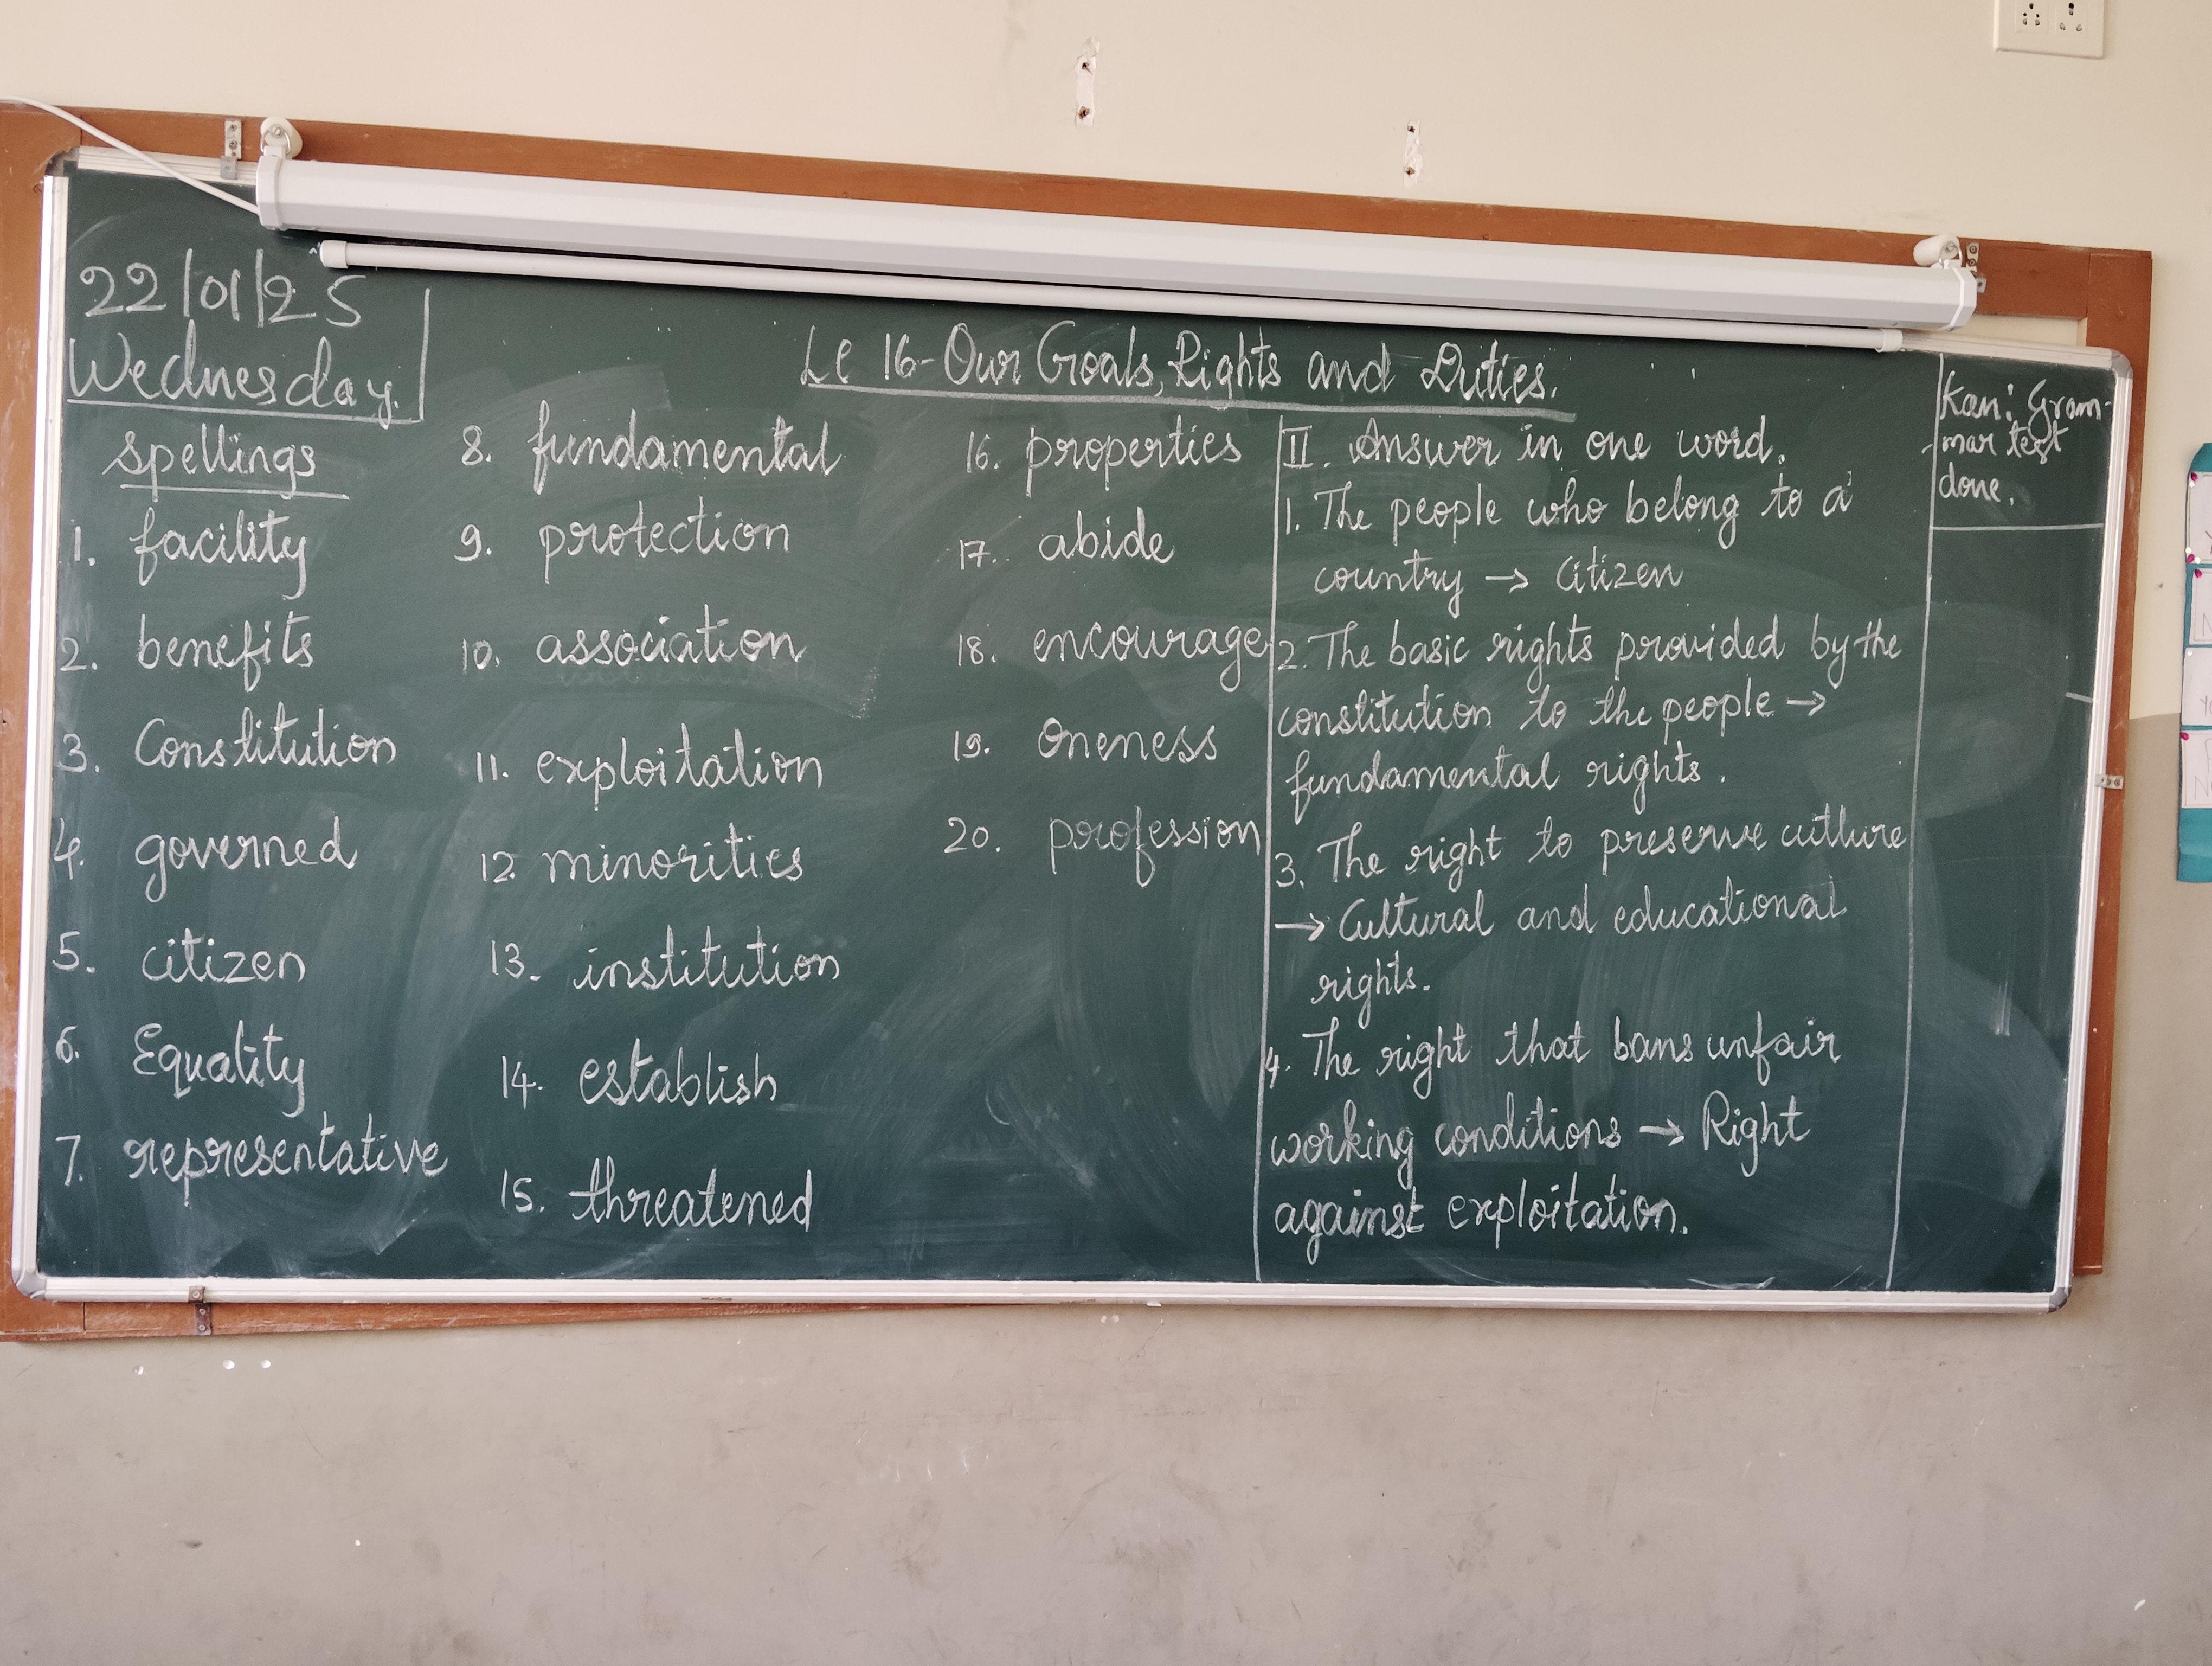 22/01/25
Wednesday.
Le 16-Our Goals, Rights and Duties.
spellings
1. facility
2. benefits
3. Constitution
4. governed
5. citizen
6. Equality
7. representative
8. fundamental
9. protection
10. association
11. exploitation
12. minorities
13. institution
14. establish
15. threatened
16. properties
17. abide
18. encourage
19. Oneness
20. profession
II. Answer in one word.
1. The people who belong to a
country → Citizen
2. The basic rights provided by the
constitution to the people →
fundamental rights.
3. The right to preserve culture
→ Cultural and educational
rights.
4. The right that bans unfair
working conditions → Right
against exploitation.
Kan: Gram-
mar test
done.